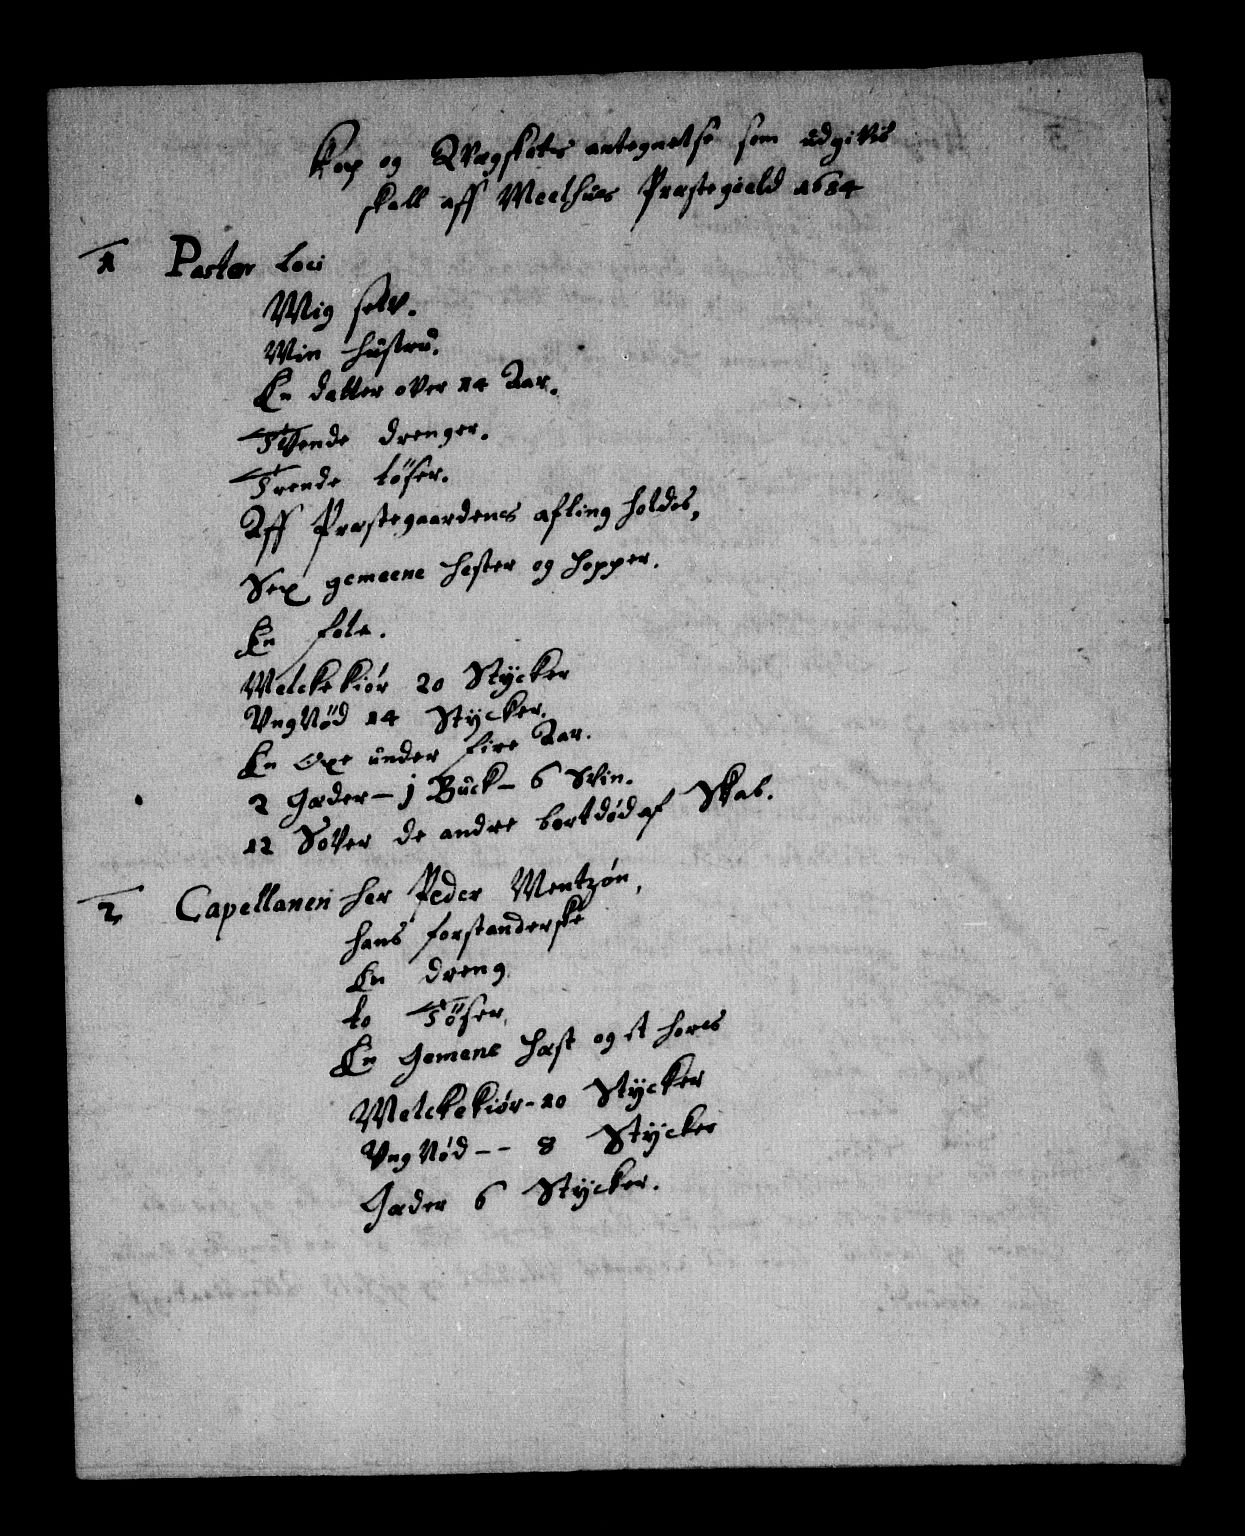 Kop og Qvægskatis antegnelse som udgivis
skall aff Meelhuus Præstegield 1684
1 Pastor Loci
Mig selv.
Min hüstrü.
En datter over 14 Aar.
Tvende drenger.
Trende töser.
Aff Præstegaardens afling holdes,
Sex gemeene hester og hopper.
En fole.
Melckekiør 20 Stÿcker
UngNöd 14 Stÿcker.
En Oxe ünder fire Aar.
2 Gæder - j Bück - 6 Svin.
12 Sover de andre bortdød af Skab.
2 Capellanen her Peder Mentzøn,
hans forstanderske
En dreng
to Töser,
En Gemene Hæst og et hores
Melckekiör - 10 Stÿcker
UngNød -- 8 Stÿcker
Gæder 6 Stÿcker.